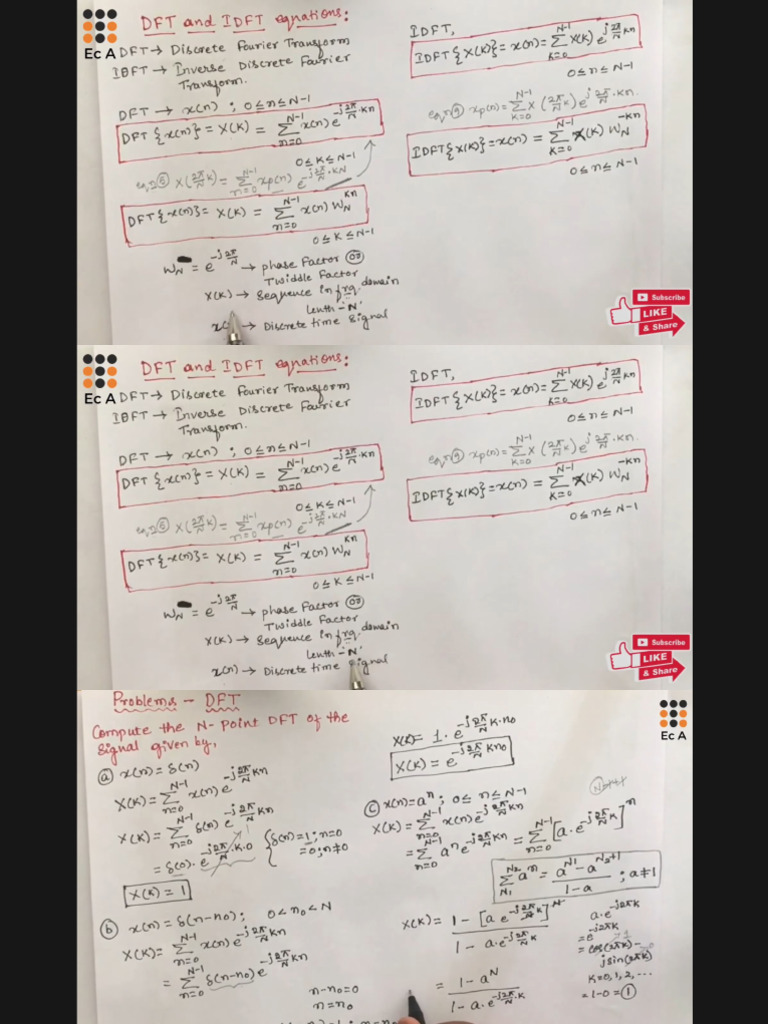 DFT and IDFT equations:
Ec A
DFT → Discrete Fourier Transform
IDFT → Inverse Discrete Fourier
Transform.
DFT → x(n) ; 0≤n≤N-1
DFT{x(n)} = X(K) = Σ_{n=0}^{N-1} x(n) e^{-j2π/N·Kn}
0≤K≤N-1
X(2π/N K) = Σ_{n=0}^{N-1} xp(n) e^{-j2π/N·KN}
DFT{x(n)} = X(K) = Σ_{n=0}^{N-1} x(n) W_N^{Kn}
0≤K≤N-1
W_N = e^{-j2π/N} → phase Factor or
Twiddle Factor
X(K) → Sequence in frq. domain
Lenth - 'N'
x( → Discrete time Signal
IDFT,
IDFT{X(K)} = x(n) = Σ_{K=0}^{N-1} X(K) e^{j2π/N Kn}
0≤n≤N-1
eqn(9) xp(n) = Σ_{K=0}^{N-1} X(2π/N K) e^{j2π/N·Kn}.
IDFT{X(K)} = x(n) = Σ_{K=0}^{N-1} X(K) W_N^{-Kn}
0≤n≤N-1
Subscribe
LIKE
& Share
DFT and IDFT equations:
Ec A
DFT → Discrete Fourier Transform
IDFT → Inverse Discrete Fourier
Transform.
DFT → x(n) ; 0≤n≤N-1
DFT{x(n)} = X(K) = Σ_{n=0}^{N-1} x(n) e^{-j2π/N·Kn}
0≤K≤N-1
X(2π/N K) = Σ_{n=0}^{N-1} xp(n) e^{-j2π/N·KN}
DFT{x(n)} = X(K) = Σ_{n=0}^{N-1} x(n) W_N^{Kn}
0≤K≤N-1
W_N = e^{-j2π/N} → phase Factor or
Twiddle Factor
X(K) → Sequence in frq. domain
Lenth - 'N'
x(n) → Discrete time Signal
IDFT,
IDFT{X(K)} = x(n) = Σ_{K=0}^{N-1} X(K) e^{j2π/N Kn}
0≤n≤N-1
eqn(9) xp(n) = Σ_{K=0}^{N-1} X(2π/N K) e^{j2π/N·Kn}.
IDFT{X(K)} = x(n) = Σ_{K=0}^{N-1} X(K) W_N^{-Kn}
0≤n≤N-1
Subscribe
LIKE
& Share
Problems - DFT
Compute the N-point DFT of the
Signal given by,
(a) x(n) = δ(n)
X(K) = Σ_{n=0}^{N-1} x(n) e^{-j2π/N Kn}
X(K) = Σ_{n=0}^{N-1} δ(n) e^{-j2π/N Kn}
= δ(0)·e^{-j2π/N·K·0} { δ(n) = 1; n=0
= 0; n≠0
X(K) = 1
(b) x(n) = δ(n-n0); 0<n0<N
X(K) = Σ_{n=0}^{N-1} x(n) e^{-j2π/N Kn}
= Σ_{n=0}^{N-1} δ(n-n0) e^{-j2π/N Kn}
n-n0=0
n=n0
X(K) = 1·e^{-j2π/N K·n0}
X(K) = e^{-j2π/N Kn0}
Ec A
(c) x(n) = a^n ; 0≤n≤N-1
X(K) = Σ_{n=0}^{N-1} x(n) e^{-j2π/N Kn}
= Σ_{n=0}^{N-1} a^n e^{-j2π/N Kn} = Σ_{n=0}^{N-1} [a·e^{-j2π/N K}]^n
Σ_{N1}^{N2} a^n = (a^{N1} - a^{N2+1}) / (1-a) ; a≠1
X(K) = (1 - [a e^{-j2π/N K}]^N) / (1 - a·e^{-j2π/N K})
= (1-a^N) / (1-a·e^{-j2π/N·K})
a·e^{-j2πK}
= e^{-j2πK}
= cos(2πK) -
jsin(2πK)
K=0,1,2,...
= 1-0 = 1